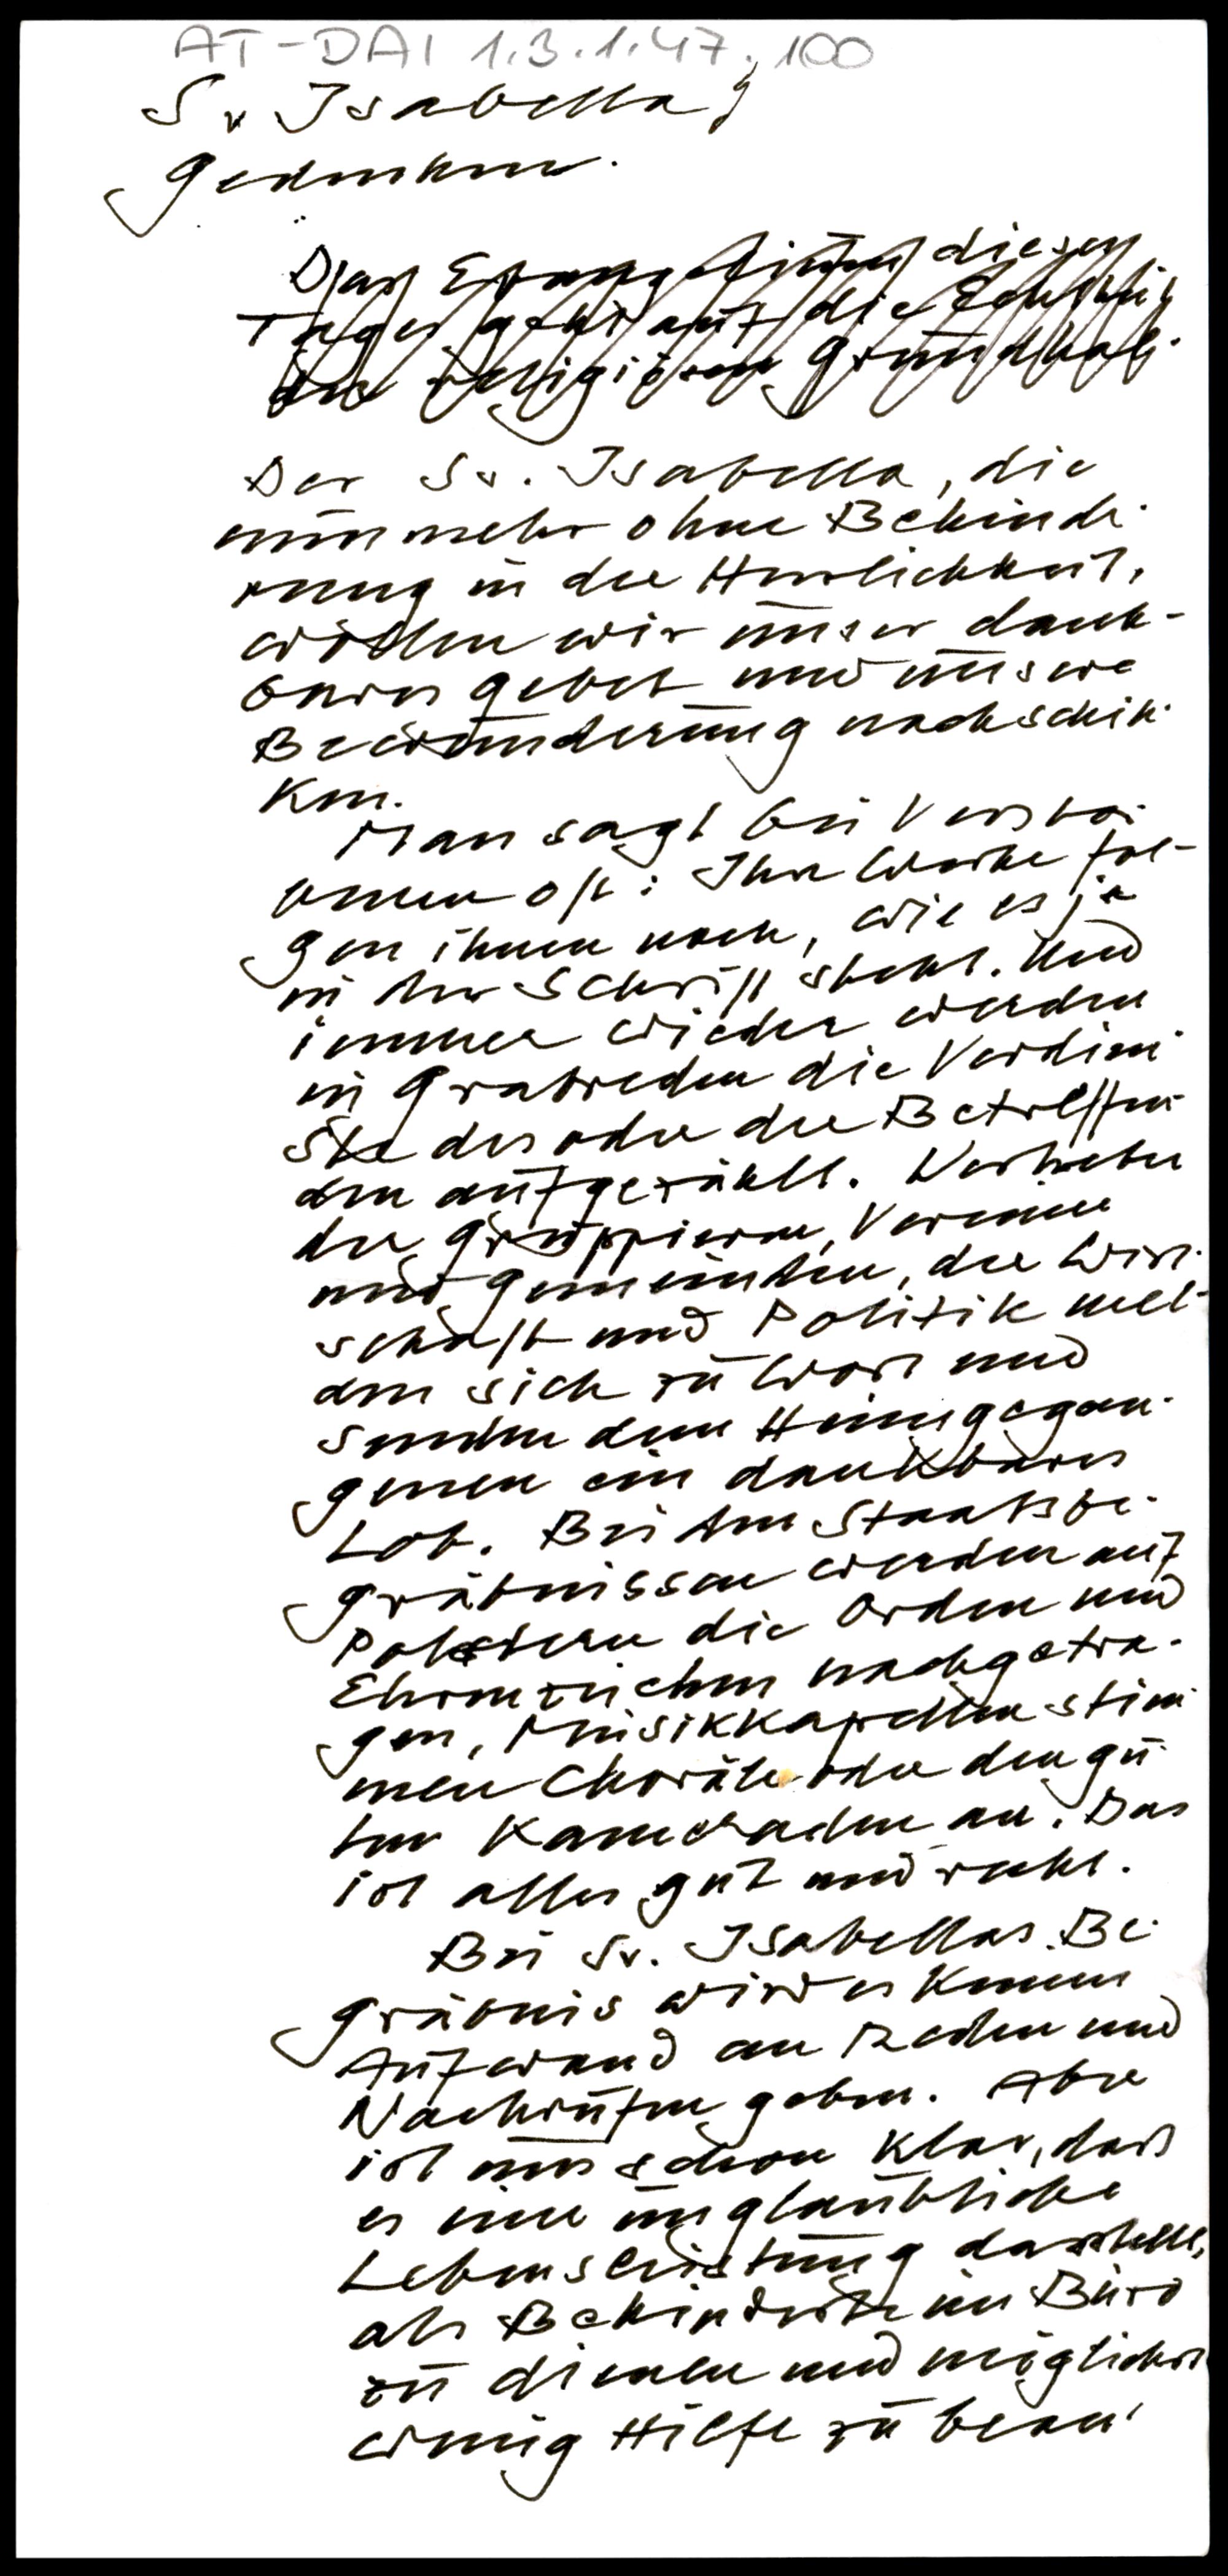 AT-DAI 1.3.1.47.100
Sr Isabella,
Gedenken.
Das Evangelium dieses
Tages geht auf die Echtheit
der religiösen Grundhal-
Der Sr. Isabella, die
nunmehr ohne Behinde-
rung in der Herrlichkeit,
wollen wir unser dank-
bares Gebet und unsere
Bewunderung nachschik-
ken.
Man sagt bei Verstor-
benen oft: Ihre Werke fol-
gen ihnen nach, wie es ja
in der Schrift steht. Und
immer wieder werden
in Grabreden die Verdien-
ste des oder der Betreffen-
den aufgezählt. Vertreter
der Gruppieren, Vereine
und Gemeinden, der Wirt-
schaft und Politik mel-
den sich zu Wort und
senden dem Heimgegan-
genen ein dankbares
Lob. Bei den Staatsbe-
gräbnissen werden auf
Polstern die Orden und
Ehrenzeichen nachgetra-
gen, Musikkapellen stim-
men Choräle oder den gu-
ten Kameraden an. Das
ist alles gut und recht.
Bei Sr. Isabellas Be-
gräbnis wird es keinen
Aufwand an Reden und
Nachrufen geben. Aber
ist uns schon klar, daß
es eine unglaubliche
Lebensleistung darstellt,
als Behinderte im Büro
zu dienen und möglichst
wenig Hilfe zu bean-